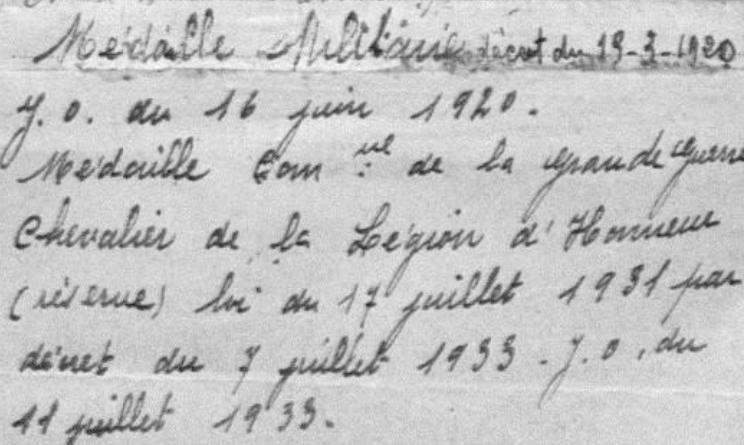 Médaille Militaire décret du 19-3-1920
J. O. du 16 juin 1920.
Médaille Com.ve de la grande guerre
Chevalier de la Légion d'Honneur
(réserve) loi du 17 juillet 1931 par
décret du 7 juillet 1933. J. O. du
11 juillet 1933.